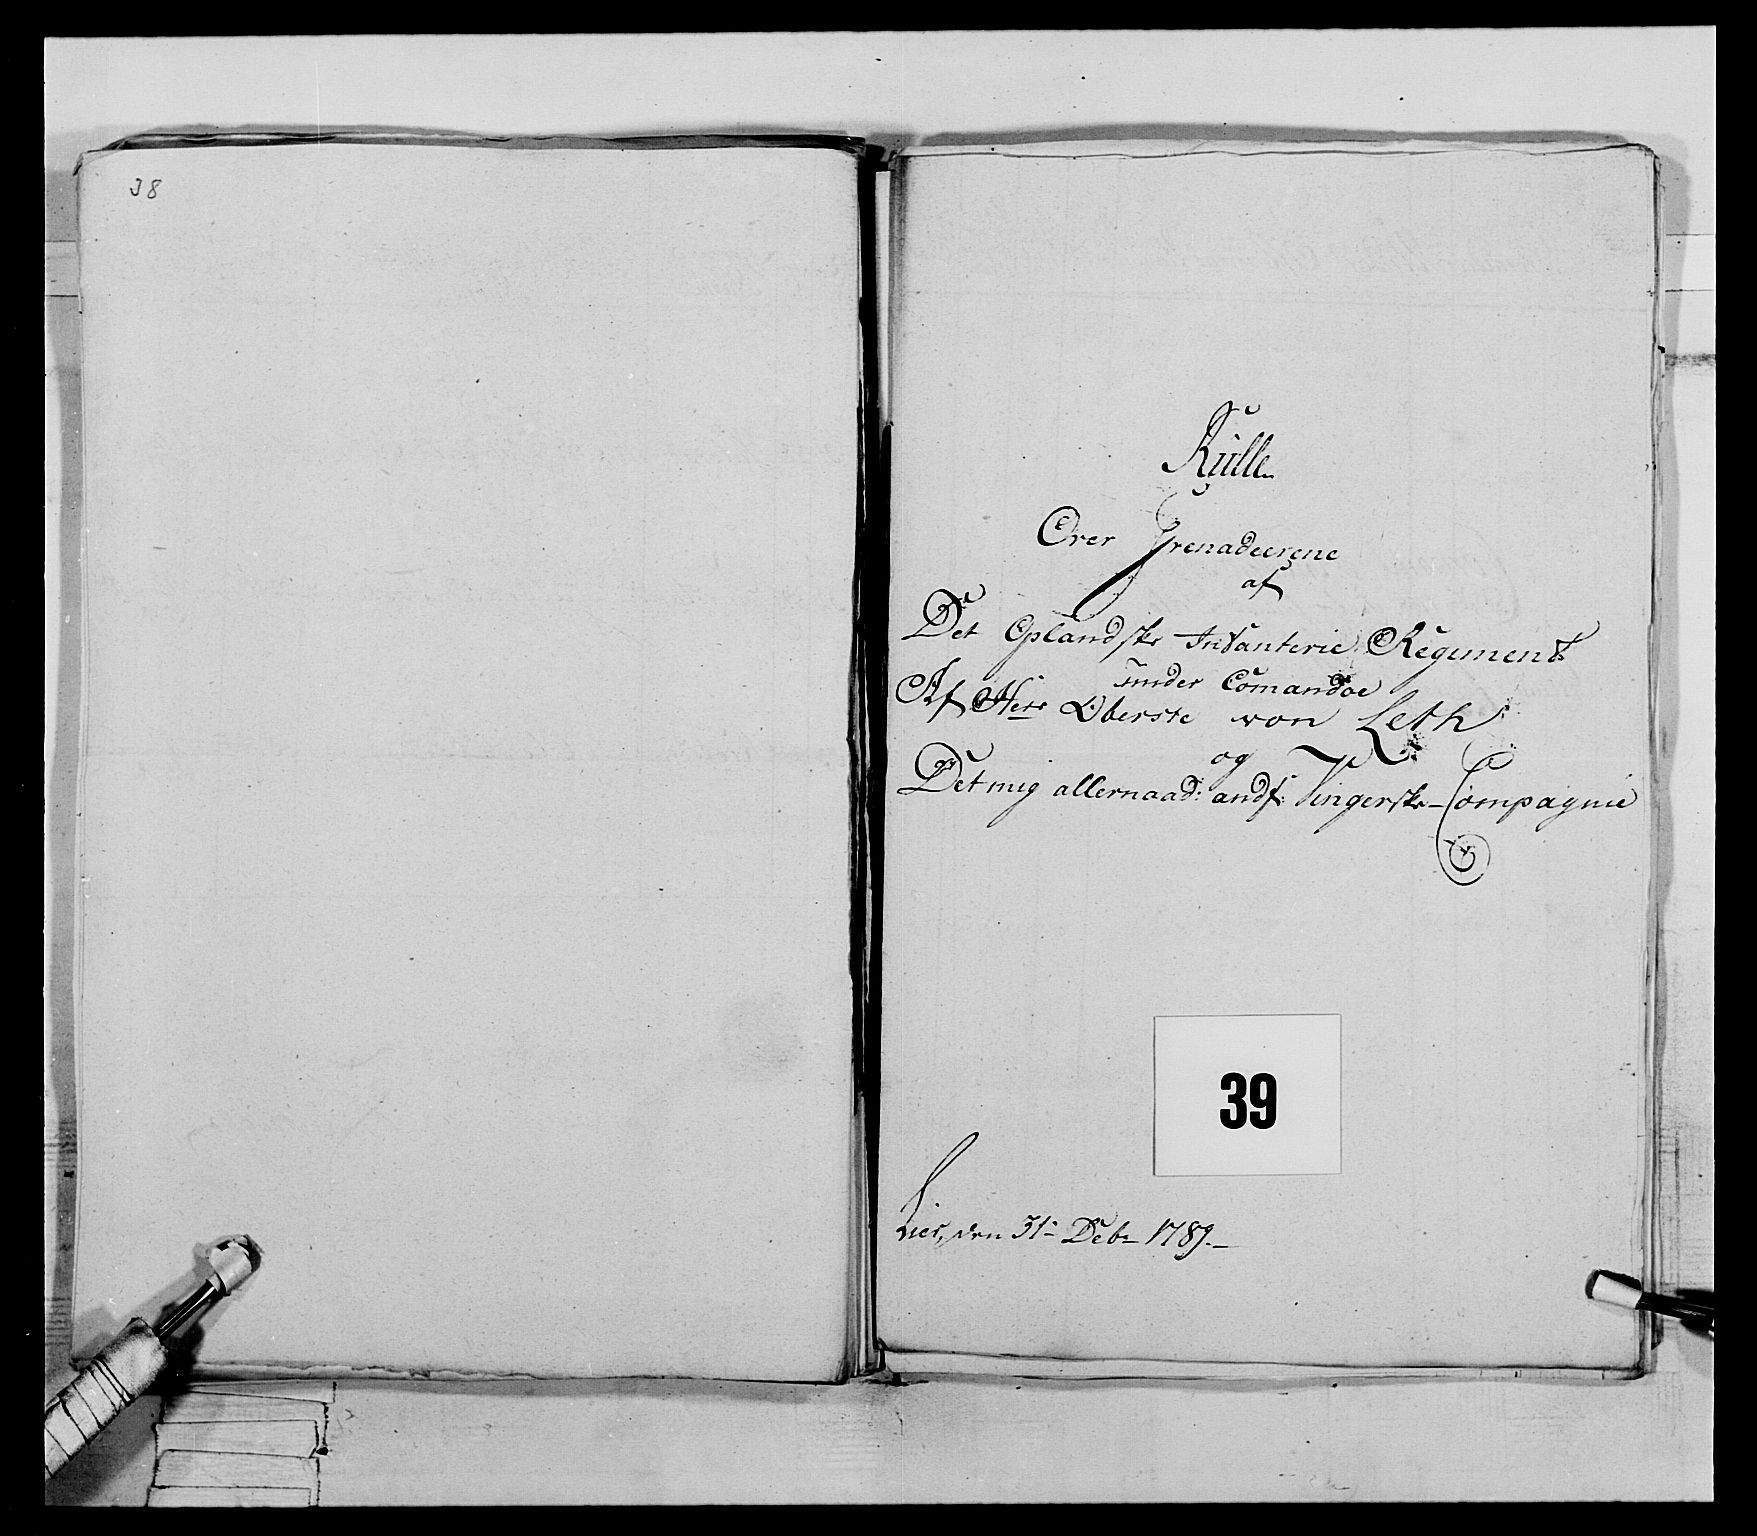 38
Rulle
Over Grenadeerene
af
Det Oplandske Infanterie Regiment
under Comandoe
Af Herr Oberste von Leth
og
Det mig allernaad: andf: Vingerske Compagnie
39
Lier, den 31te Debr 1789.